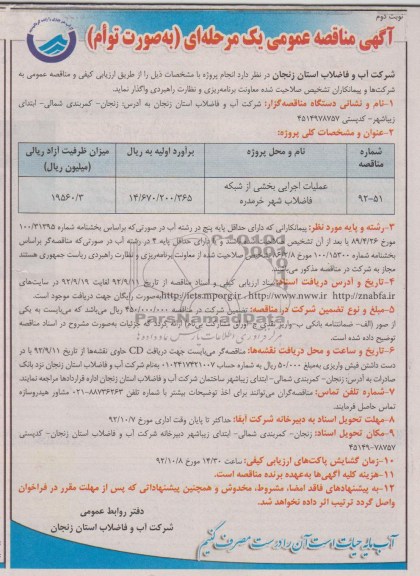 نوبت دوم
آگهی مناقصه عمومی یک مرحله‌ای (به‌صورت توأم)
شرکت آب و فاضلاب استان زنجان در نظر دارد انجام پروژه با مشخصات ذیل را از طریق ارزیابی کیفی و مناقصه عمومی به
شرکت‌ها و پیمانکاران تشخیص صلاحیت شده معاونت برنامه‌ریزی و نظارت راهبردی واگذار نماید.
۱-نام و نشانی دستگاه مناقصه‌گزار: شرکت آب و فاضلاب استان زنجان به آدرس: زنجان- کمربندی شمالی- ابتدای
زیباشهر- کدپستی ۴۵۱۴۹۷۸۷۵۷
۲-عنوان و مشخصات کلی پروژه:
شماره مناقصه نام و محل پروژه برآورد اولیه به ریال میزان ظرفیت آزاد ریالی (میلیون ریال)
۹۲-۵۱ عملیات اجرایی بخشی از شبکه فاضلاب شهر خرمدره ۱۴/۶۷۰/۲۰۰/۳۶۵ ۱۹۵۶۰/۳
۳-رشته و پایه مورد نظر: پیمانکارانی که دارای حداقل پایه پنج در رشته آب در صورتی‌که براساس بخشنامه شماره ۱۰۰/۳۱۲۹۵
مورخ ۸۹/۴/۲۶ یا بعد از آن تشخیص دارای حداقل پایه ۴ در رشته آب در صورتی‌که مناقصه‌گر براساس
بخشنامه شماره ۱۰۰/۱۵۳۰۰ مورخ صلاحیت شده از معاونت برنامه‌ریزی و نظارت راهبردی ریاست جمهوری هستند
مجاز به شرکت در مناقصه مذکور می‌باشند.
۴-تاریخ و آدرس دریافت اسناد: اسناد ارزیابی کیفی و اسناد مناقصه از تاریخ ۹۲/۹/۱۱ لغایت ۹۲/۹/۱۹ در سایت‌های
http://iets.mporg.ir- http://www.nww.ir http://znabfa.ir به‌صورت رایگان جهت دریافت موجود است.
۵-مبلغ و نوع تضمین شرکت در مناقصه: تضمین شرکت در مناقصه ۴۵۰/۰۰۰/۰۰۰ ریال می‌باشد که می‌بایست به یکی
از صور (الف- ضمانتنامه بانکی ب-واریز که جزئیات به‌صورت مشروح در اسناد مناقصه
توضیح داده شده است.
۶-تاریخ و ساعت و محل دریافت نقشه‌ها: مناقصه‌گر می‌بایست جهت دریافت CD حاوی نقشه‌ها از تاریخ ۹۲/۹/۱۱ با در
دست داشتن فیش واریزی به‌مبلغ ۵۰/۰۰۰ ریال به شماره حساب ۰۱۰۲۴۱۷۴۲۱۰۰۷ به‌نام شرکت آب و فاضلاب استان زنجان نزد بانک
صادرات به آدرس: زنجان- کمربندی شمالی- ابتدای زیباشهر ساختمان شرکت آب و فاضلاب استان زنجان اداره قراردادها مراجعه نمایند.
۷-شماره تلفن تماس: مناقصه‌گران می‌توانند برای اخذ توضیحات بیشتر با شماره تلفن ۸۸۷۳۶۲۶۳-۰۲۱ مشاور هیدروسازه
تماس حاصل فرمایند.
۸-مهلت تحویل اسناد به دبیرخانه شرکت آبفا: حداکثر تا پایان وقت اداری مورخ ۹۲/۱۰/۷
۹-مکان تحویل اسناد: زنجان- کمربندی شمالی- ابتدای زیباشهر دبیرخانه شرکت آب و فاضلاب استان زنجان- کدپستی
۴۵۱۴۹-۷۸۷۵۷
۱۰-زمان گشایش پاکت‌های ارزیابی کیفی: ساعت ۱۴/۳۰ مورخ ۹۲/۱۰/۸
۱۱-هزینه کلیه آگهی‌ها به‌عهده برنده مناقصه است.
۱۲-به پیشنهادهای فاقد امضا، مشروط، مخدوش و همچنین پیشنهاداتی که پس از مهلت مقرر در فراخوان
واصل گردد ترتیب اثر داده نخواهد شد.
دفتر روابط عمومی
شرکت آب و فاضلاب استان زنجان
آب مایه حیات است آن را درست مصرف کنیم
ParsNamadData